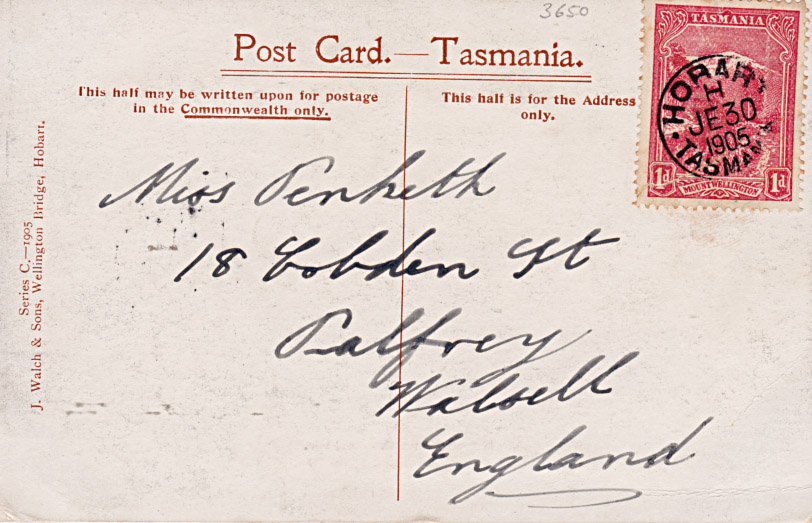 3650
Post Card.—Tasmania.
This half may be written upon for postage
in the Commonwealth only.
This half is for the Address
only.
TASMANIA
1d
MOUNT WELLINGTON
1d
HOBART
H
JE 30
1905
TASMANIA
Miss Penketh
18 Cobden St
Palfrey
Walsell
England
Series C.—1905
J. Walch & Sons, Wellington Bridge, Hobart.